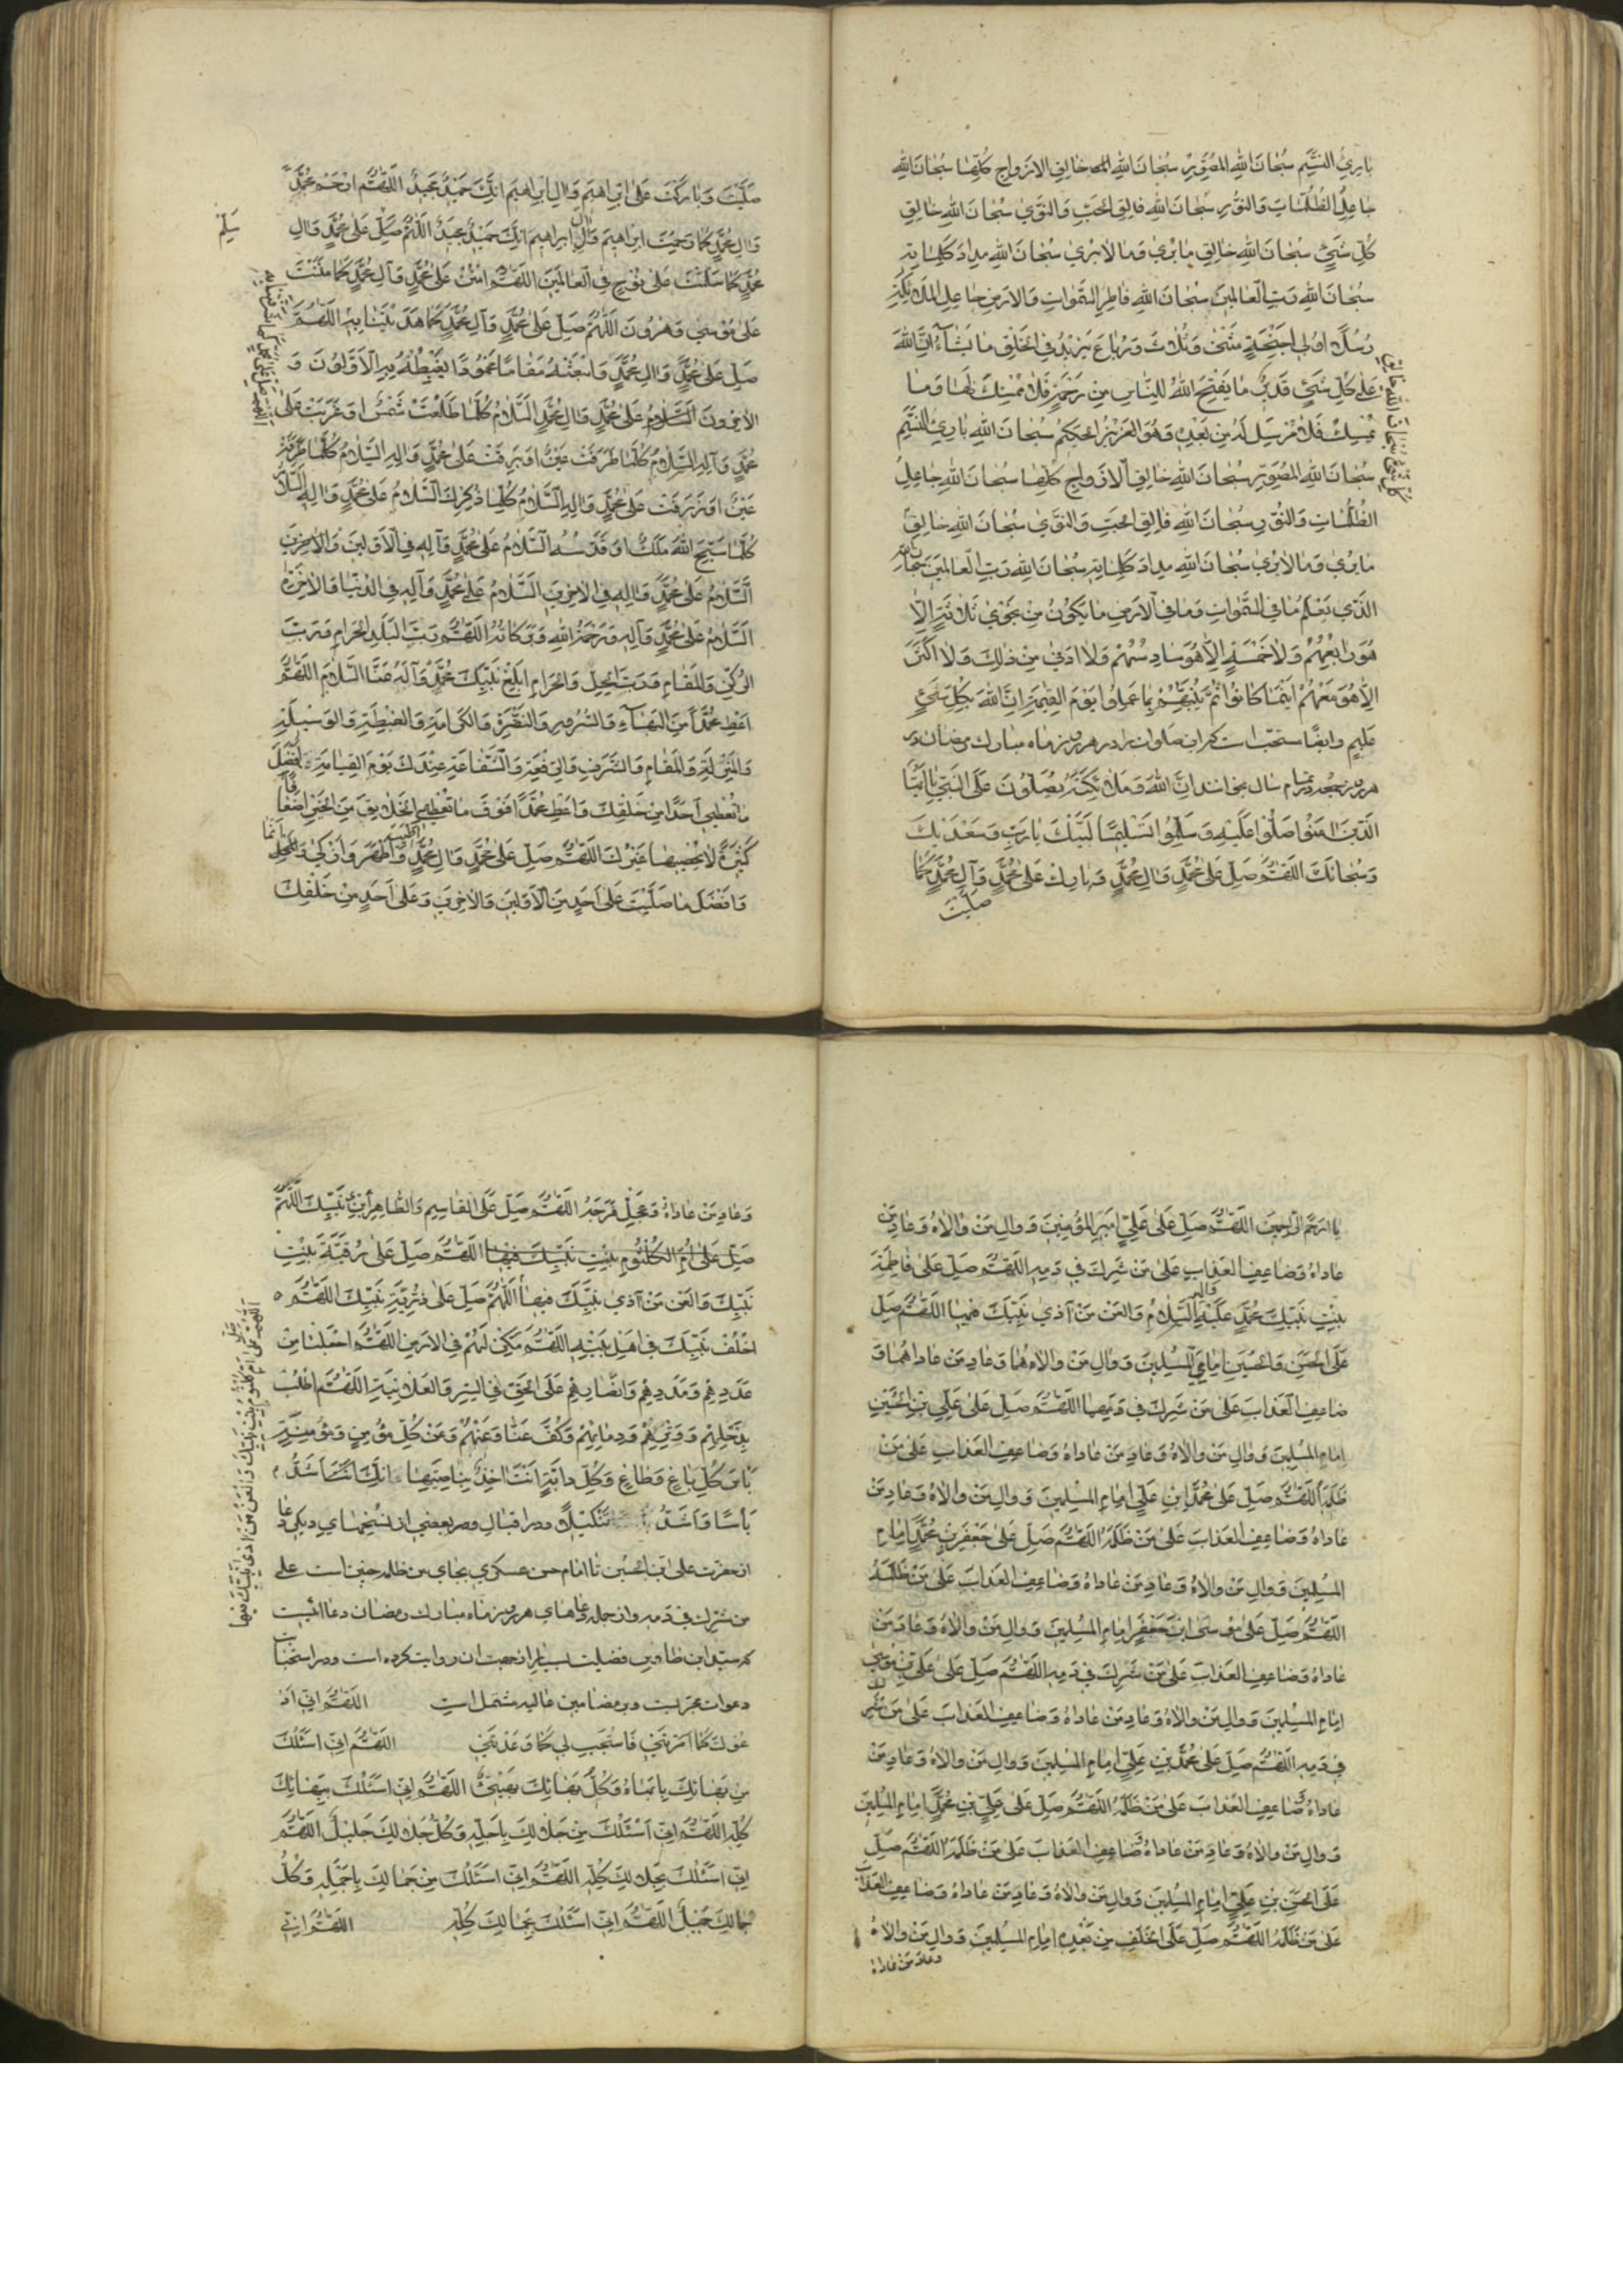 بارئ النسم سبحان الله المصور سبحان الله خالق الازواج كلها سبحان الله
جاعل الظلمات والنور سبحان الله فالق الحب والنوى سبحان الله خالق
كل شيء سبحان الله خالق ما يرى وما لا يرى سبحان الله مداد كلماته
سبحان الله رب العالمين سبحان الله فاطر السموات والارض جاعل الملائكة
رسلا اولي اجنحة مثنى وثلاث ورباع يزيد في الخلق ما يشاء ان الله
على كل شيء قدير ما يفتح الله للناس من رحمة فلا ممسك لها وما
يمسك فلا مرسل له من بعده وهو العزيز الحكيم سبحان الله بارئ النسم
سبحان الله المصور سبحان الله خالق الازواج كلها سبحان الله جاعل
الظلمات والنور سبحان الله فالق الحب والنوى سبحان الله خالق
كل شيء سبحان الله خالق
ما يرى وما لا يرى سبحان الله مداد كلماته سبحان الله رب العالمين سبحان الله
الذي يعلم ما في السموات وما في الارض ما يكون من نجوى ثلاثة الا
هو رابعهم ولا خمسة الا هو سادسهم ولا ادنى من ذلك ولا اكثر
الا هو معهم اينما كانوا ثم ينبئهم بما عملوا يوم القيمة ان الله بكل شيء
عليم وايضا مستحب است كه اين صلوات را در هر روز ماه مبارك رمضان ودر
هر روز جمعه تمام سال بخواند ان الله وملائكته يصلون على النبي يا ايها
الذين امنوا صلوا عليه وسلموا تسليما لبيك يا رب وسعديك
وسبحانك اللهم صل على محمد وال محمد وبارك على محمد وآل محمد كما
صليت
صليت وباركت على ابراهيم وال ابراهيم انك حميد مجيد اللهم ارحم محمدا
وال محمد كما رحمت ابراهيم وال ابراهيم انك حميد مجيد اللهم صل على محمد وال
سلم
محمد كما سلمت على نوح في العالمين اللهم امنن على محمد وآل محمد كما مننت
على موسى وهرون اللهم صل على محمد وآل محمد كما هديتنا به اللهم
صل على محمد وال محمد وابعثه مقاما محمودا يغبطه به الاولون و
الاخرون السلام على محمد وال محمد السلام كلما طلعت شمس او غربت على
محمد وآله السلام كلما طرفت عين او برقت على محمد واله السلام كلما طرفت
عين او ذرفت على محمد واله السلام كلما ذكر السلام على محمد واله السلام
كلما سبح الله ملك او قدسه السلام على محمد وآله في الاولين والاخرين
السلام على محمد واله في الاخرين السلام على محمد وآله في الدنيا والاخرة
السلام على محمد وآله ورحمة الله وبركاته اللهم رب البلد الحرام ورب
الركن والمقام ورب الحل والحرام ابلغ نبيك محمد وآله منا السلام اللهم
اعط محمدا من البهاء والسرور والنضرة والكرامة والغبطة والوسيلة
والمنزلة والمقام والشرف والرفعة والشفاعة عندك يوم القيامة افضل
ما تعطي احدا من خلقك واعط محمدا فوق ما تعطي الخلائق من الخير اضعافا
كثيرة لا يحصيها غيرك اللهم صل على محمد وال محمد اطيب واطهر وازكى
وافضل ما صليت على احد من الاولين والاخرين وعلى احد من خلقك
يا ارحم الراحمين اللهم صل على علي امير المؤمنين ووال من والاه وعاد من
عاداه وضاعف العذاب على من شرك في دمه اللهم صل على فاطمة
بنت نبيك محمد عليه واله السلام والعن من آذى نبيك فيها اللهم صل
على الحسن والحسين امامي المسلمين ووال من والاهما وعاد من عاداهما و
ضاعف العذاب على من شرك في دمهما اللهم صل على علي بن الحسين
امام المسلمين ووال من والاه وعاد من عاداه وضاعف العذاب على من
ظلمه اللهم صل على محمد ابن علي امام المسلمين ووال من والاه وعاد من
عاداه وضاعف العذاب على من ظلمه اللهم صل على جعفر بن محمد امام
المسلمين ووال من والاه وعاد من عاداه وضاعف العذاب على من ظلمه
اللهم صل على موسى ابن جعفر امام المسلمين ووال من والاه وعاد من
عاداه وضاعف العذاب على من شرك في دمه اللهم صل على علي بن موسى
امام المسلمين ووال من والاه وعاد من عاداه وضاعف العذاب على من شرك
في دمه اللهم صل على محمد بن علي امام المسلمين ووال من والاه وعاد من
عاداه وضاعف العذاب على من ظلمه اللهم صل على علي بن محمد امام المسلمين
ووال من والاه وعاد من عاداه وضاعف العذاب على من ظلمه اللهم صل
على الحسن بن علي امام المسلمين ووال من والاه وعاد من عاداه وضاعف العذاب
على من ظلمه اللهم صل على الخلف من بعده امام المسلمين ووال من والاه
وعاد من عاداه
وعاد من عاداه وعجل فرجه اللهم صل على القاسم والطاهر ابني نبيك اللهم
صل على ام الكلثوم بنت نبيك فيها اللهم صل على رقية بنت
نبيك والعن من آذى نبيك فيها اللهم صل على ذرية نبيك اللهم
اللهم صل على ام كلثوم بنت نبيك والعن من آذى نبيك فيها
اخلف نبيك في اهل بيته اللهم مكن لهم في الارض اللهم اجعلنا من
عددهم ومددهم وانصارهم على الحق في السر والعلانية اللهم اطلب
بذحلهم ووترهم ودمائهم وكف عنا وعنهم وعن كل مؤمن ومؤمنة
باس كل باغ وطاغ وكل دابة انت اخذ بناصيتها انك انت اشد
باسا واشد تنكيلا ودر اقبال ودر بعضي از نسخهاي ديكر دعا
از حضرت علي ابن الحسين تا امام حسن عسكري بجاي من ظلمه چنين است على
من شرك في دمه واز جمله دعاهاي هر روز ماه مبارك رمضان دعاائيست
كه سيد ابن طاوس فضيلت بسيار از جهت ان روايت كرده است ودر استجاب
دعوات مجربست وبر مضامين عاليه مشتمل است اللهم اني اد
عوك كما امرتني فاستجب لي كما وعدتني اللهم اني اسئلك
من بهائك بابهاه وكل بهائك بهي اللهم اني اسئلك ببهائك
كله اللهم اني اسئلك من جلالك باجله وكل جلالك جليل اللهم
اني اسئلك بجلالك كله اللهم اني اسئلك من جمالك باجمله وكل
جمالك جميل اللهم اني اسئلك بجمالك كله اللهم اني